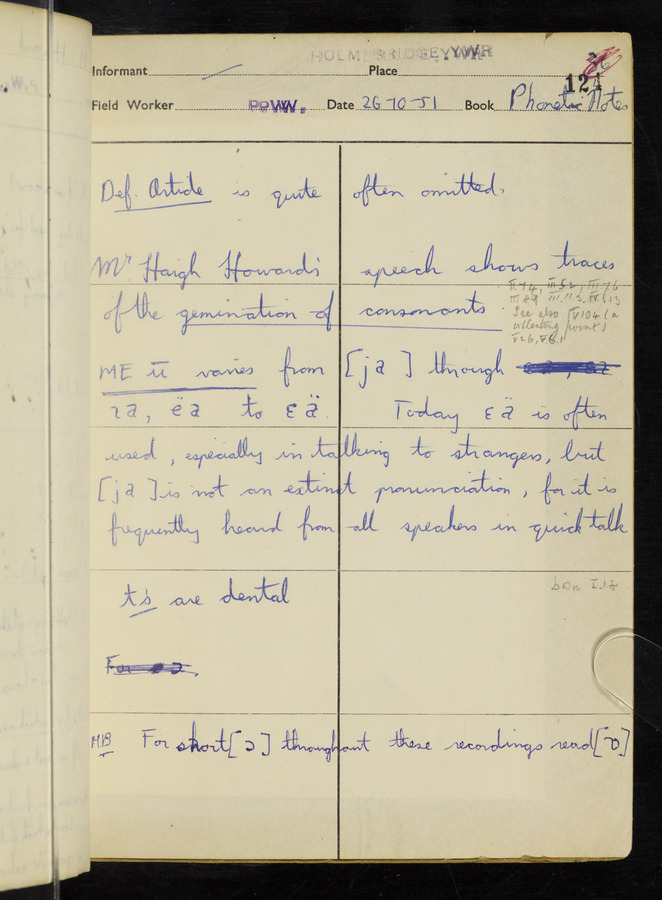 HOLMBRIDGE, YWR
Informant Place
124
Field Worker P.P.W.W. Date 26-10-51 Book Phonetic Notes
Def. Article is quite often omitted.
Mr Haigh Howard's speech shows traces
of the gemination of consonants
See also V104 (a
collecting point)
ME ū varies from [ja ] through
ɪa, ëa to ɛä. Today ɛä is often
used, especially in talking to strangers, but
[ja ] is not an extinct pronunciation, for it is
frequently heard from all speakers in quick talk
t's are dental
bɒn I.1.8
For
NB For short [ɔ] throughout these recordings read [ɒ]